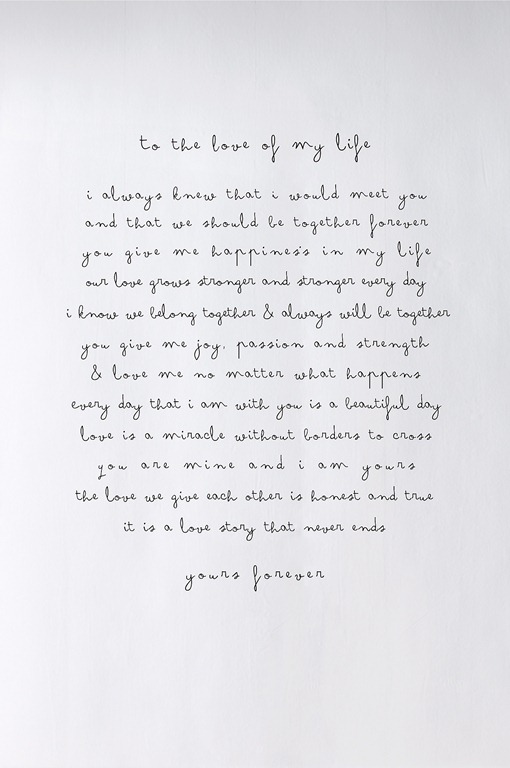 to the love of my life
i always knew that i would meet you
and that we should be together forever
you give me happiness in my life
our love grows stronger and stronger every day
i know we belong together & always will be together
you give me joy, passion and strength
& love me no matter what happens
every day that i am with you is a beautiful day
love is a miracle without borders to cross
you are mine and i am yours
the love we give each other is honest and true
it is a love story that never ends
yours forever